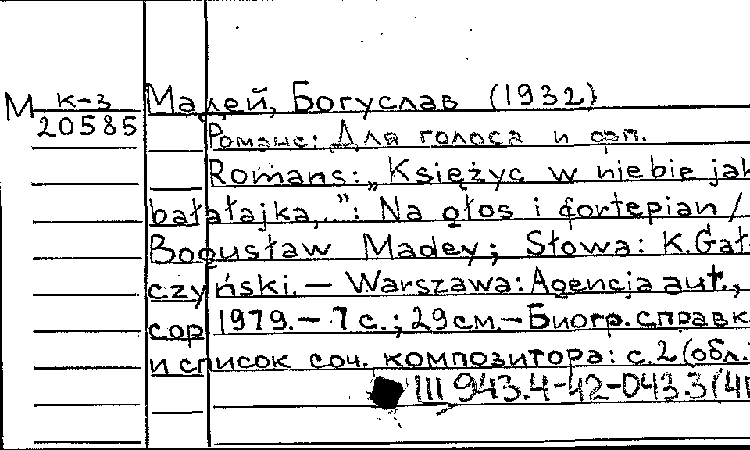 М к-з 20585
Мадей, Богуслав (1932)
Романс: Для голоса и фп.
Romans: „Księżyc w niebie jak
bałałajka,..”: Na głos i fortepian /
Bogusław Madey; Słowa: K.Gał-
czyński. — Warszawa: Agencja aut.,
cop 1979. — 7 с.; 29 см. — Биогр. справк
и список соч. композитора: с.2 (обл.
III 943.4-42-043.3(4